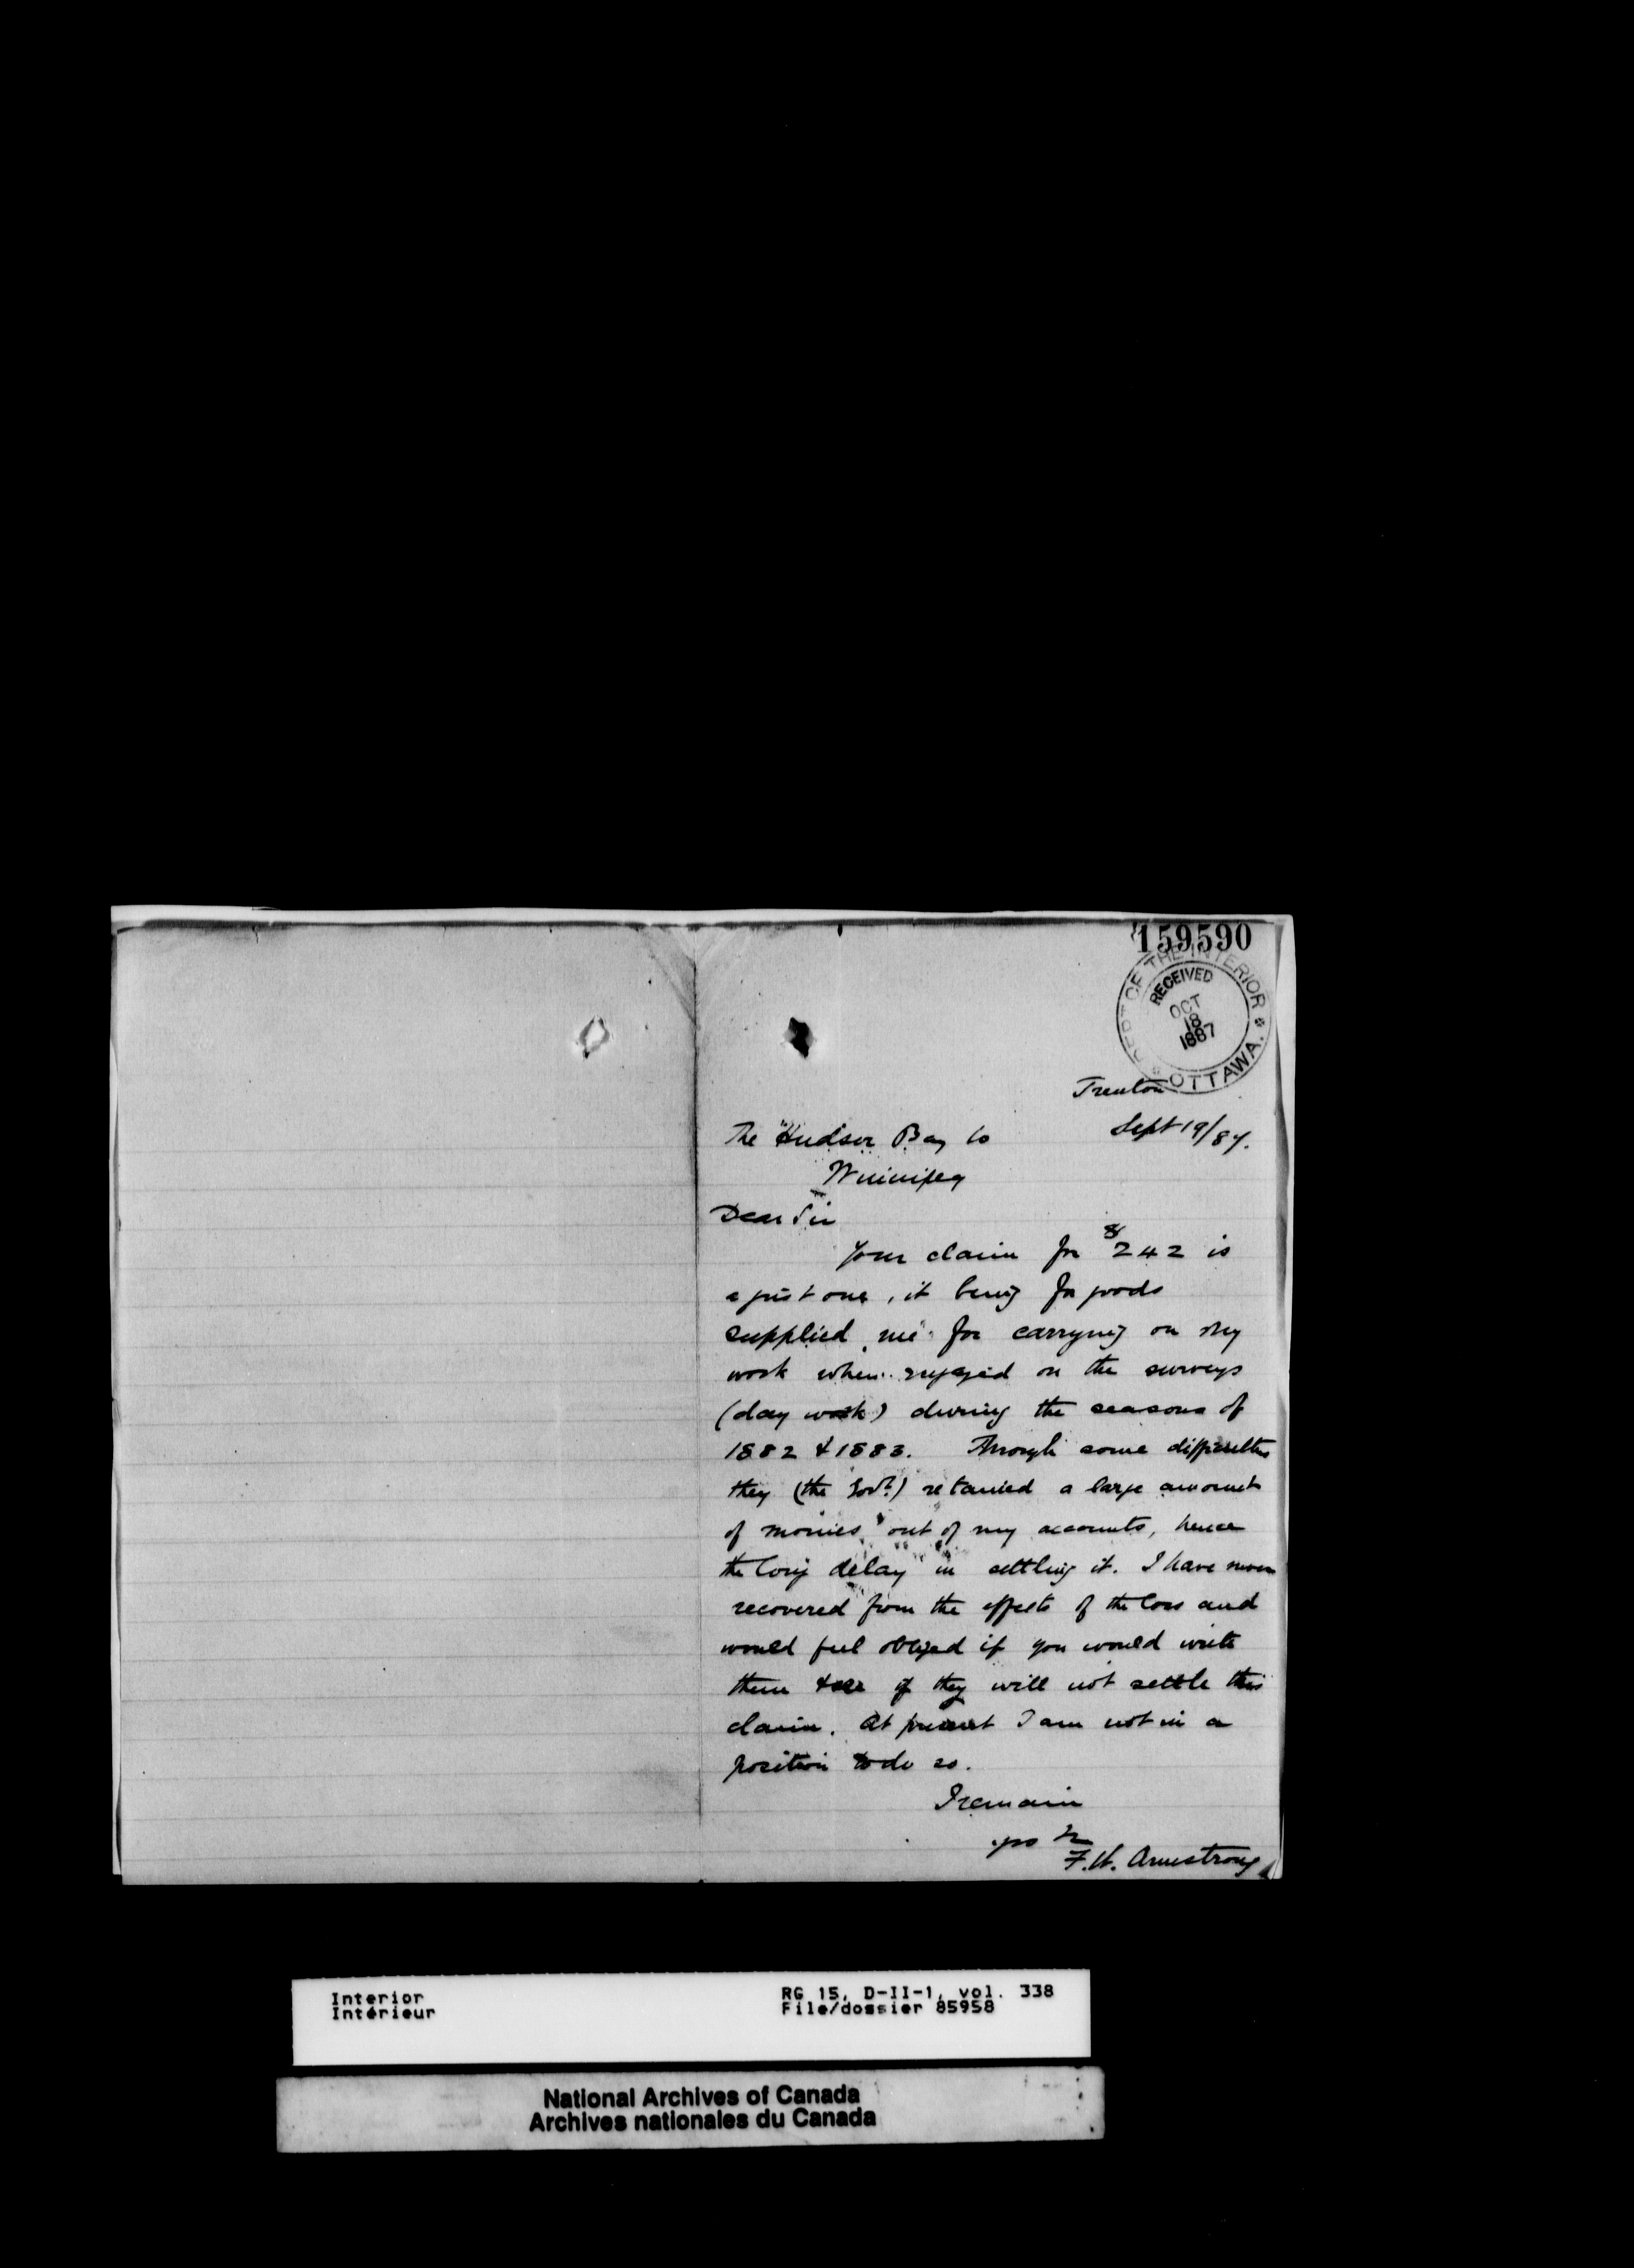 159590
DEPT OF THE INTERIOR
RECEIVED
OCT
18
1887
OTTAWA.
Trenton
Sept 19/87.
The Hudson Bay Co
Winnipeg
Dear Sir
Your claim for $242 is
a just one, it being for goods
supplied me for carrying on my
work when engaged on the surveys
(day work) during the seasons of
1882 & 1883. Through some difficulties
they (the Govt) retained a large amount
of monies out of my accounts, hence
the long delay in settling it. I have never
recovered from the effects of the loss and
would feel obliged if you would write
them & see if they will not settle this
claim. At present I am not in a
position to do so.
I remain
F.W. Armstrong
Interior
Intérieur
RG 15, D-II-1, vol. 338
File/dossier 85958
National Archives of Canada
Archives nationales du Canada